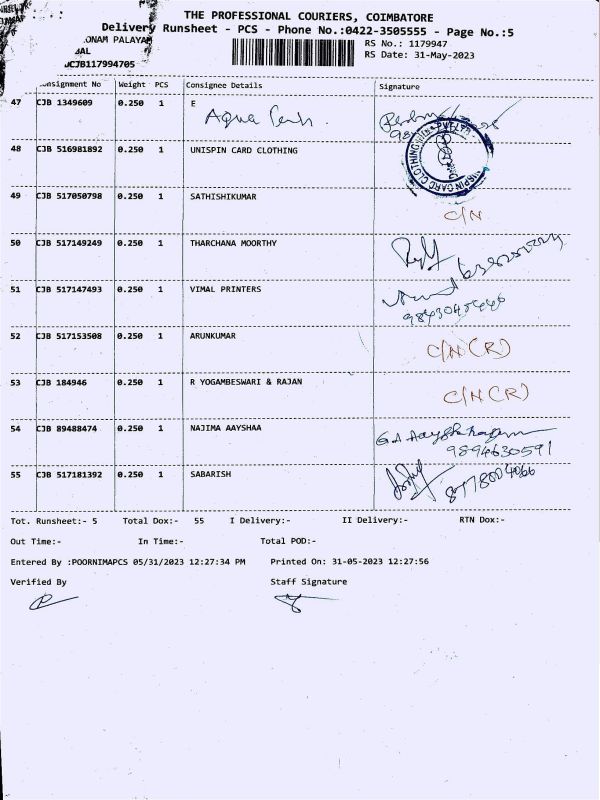 THE PROFESSIONAL COURIERS, COIMBATORE
Delivery Runsheet - PCS - Phone No.:0422-3505555 - Page No.:5
ONAM PALAYAM
RS No.: 1179947
RS Date: 31-May-2023
JCJB117994705
Consignment No Weight PCS Consignee Details Signature
47 CJB 1349609 0.250 1 E
Aqua
48 CJB 516981892 0.250 1 UNISPIN CARD CLOTHING
49 CJB 517050798 0.250 1 SATHISHIKUMAR C/N
50 CJB 517149249 0.250 1 THARCHANA MOORTHY
51 CJB 517147493 0.250 1 VIMAL PRINTERS
52 CJB 517153508 0.250 1 ARUNKUMAR C/N (R)
53 CJB 184946 0.250 1 R YOGAMBESWARI & RAJAN C/N (R)
54 CJB 89488474 0.250 1 NAJIMA AAYSHAA
9894630591
55 CJB 517181392 0.250 1 SABARISH
Tot. Runsheet:- 5 Total Dox:- 55 I Delivery:- II Delivery:- RTN Dox:-
Out Time:- In Time:- Total POD:-
Entered By :POORNIMAPCS 05/31/2023 12:27:34 PM Printed On: 31-05-2023 12:27:56
Verified By Staff Signature